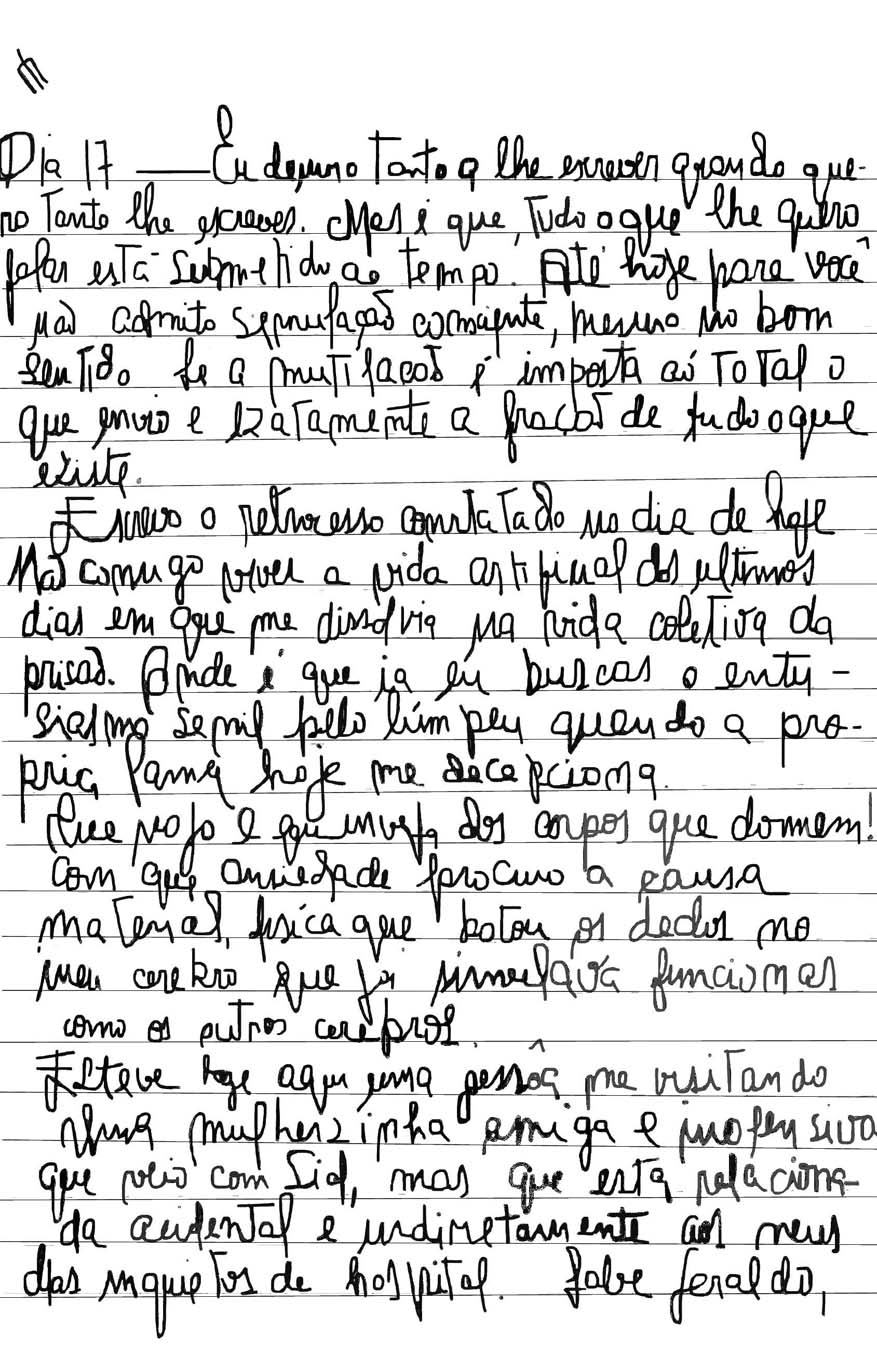 Dia 17 — Eu demoro tanto a lhe escrever quando que-
ro tanto lhe escrever. Mas é que, tudo o que lhe quero
falar está submetido ao tempo. Até hoje para você
não admito simulação consciente, mesmo no bom
sentido. Se a mutilação é imposta ao total o
que envio é exatamente a fração de tudo o que
existe.
Escrevo o retrocesso constatado no dia de hoje
Não consigo viver a vida artificial dos ultimos
dias em que me dissolvia na vida coletiva da
prisão. Onde é que ia eu buscar o entu-
siasmo senil pelo lúmpen quando a pro-
pria hoje me decepciona.
Que nojo e que inveja dos corpos que dormem!
Com que ansiedade procuro a causa
material, física que botou os dedos no
meu cerebro que já simulava funcionar
como os outros cerebros.
Esteve hoje aqui uma pessôa me visitando
Uma mulherzinha amiga e inofensiva
que veio com Sid, mas que está relaciona-
da acidental e indiretamente aos meus
dias inquietos de hospital. Sabe Geraldo,